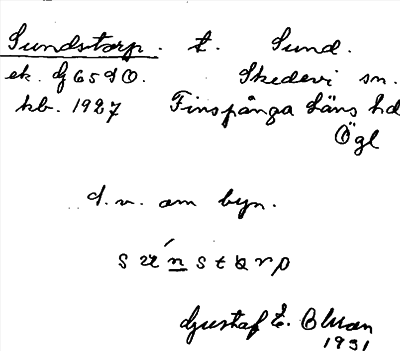 Sundstorp. t. Sund.
ek. Gj65d0. Skedevi sn.
kb. 1927 Finspånga läns hd
Ögl
d.v. om byn.
sún̲storp
Gustaf E. Ohman
1931